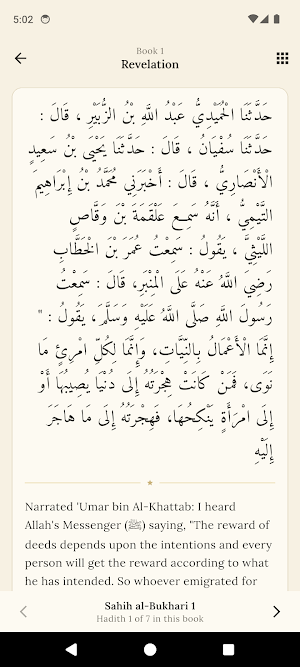 5:02
Book 1
Revelation
حَدَّثَنَا الْحُمَيْدِيُّ عَبْدُ اللَّهِ بْنُ الزُّبَيْرِ ، قَالَ :
حَدَّثَنَا سُفْيَانُ ، قَالَ : حَدَّثَنَا يَحْيَى بْنُ سَعِيدٍ
الْأَنْصَارِيُّ ، قَالَ : أَخْبَرَنِي مُحَمَّدُ بْنُ إِبْرَاهِيمَ
التَّيْمِيُّ ، أَنَّهُ سَمِعَ عَلْقَمَةَ بْنَ وَقَّاصٍ
اللَّيْثِيَّ ، يَقُولُ : سَمِعْتُ عُمَرَ بْنَ الْخَطَّابِ
رَضِيَ اللَّهُ عَنْهُ عَلَى الْمِنْبَرِ، قَالَ : سَمِعْتُ
رَسُولَ اللَّهِ صَلَّى اللَّهُ عَلَيْهِ وَسَلَّمَ، يَقُولُ : "
إِنَّمَا الْأَعْمَالُ بِالنِّيَّاتِ، وَإِنَّمَا لِكُلِّ امْرِئٍ مَا
نَوَى، فَمَنْ كَانَتْ هِجْرَتُهُ إِلَى دُنْيَا يُصِيبُهَا أَوْ
إِلَى امْرَأَةٍ يَنْكِحُهَا، فَهِجْرَتُهُ إِلَى مَا هَاجَرَ
إِلَيْهِ
Narrated 'Umar bin Al-Khattab: I heard
Allah's Messenger (ﷺ) saying, "The reward of
deeds depends upon the intentions and every
person will get the reward according to what
he has intended. So whoever emigrated for
Sahih al-Bukhari 1
Hadith 1 of 7 in this book